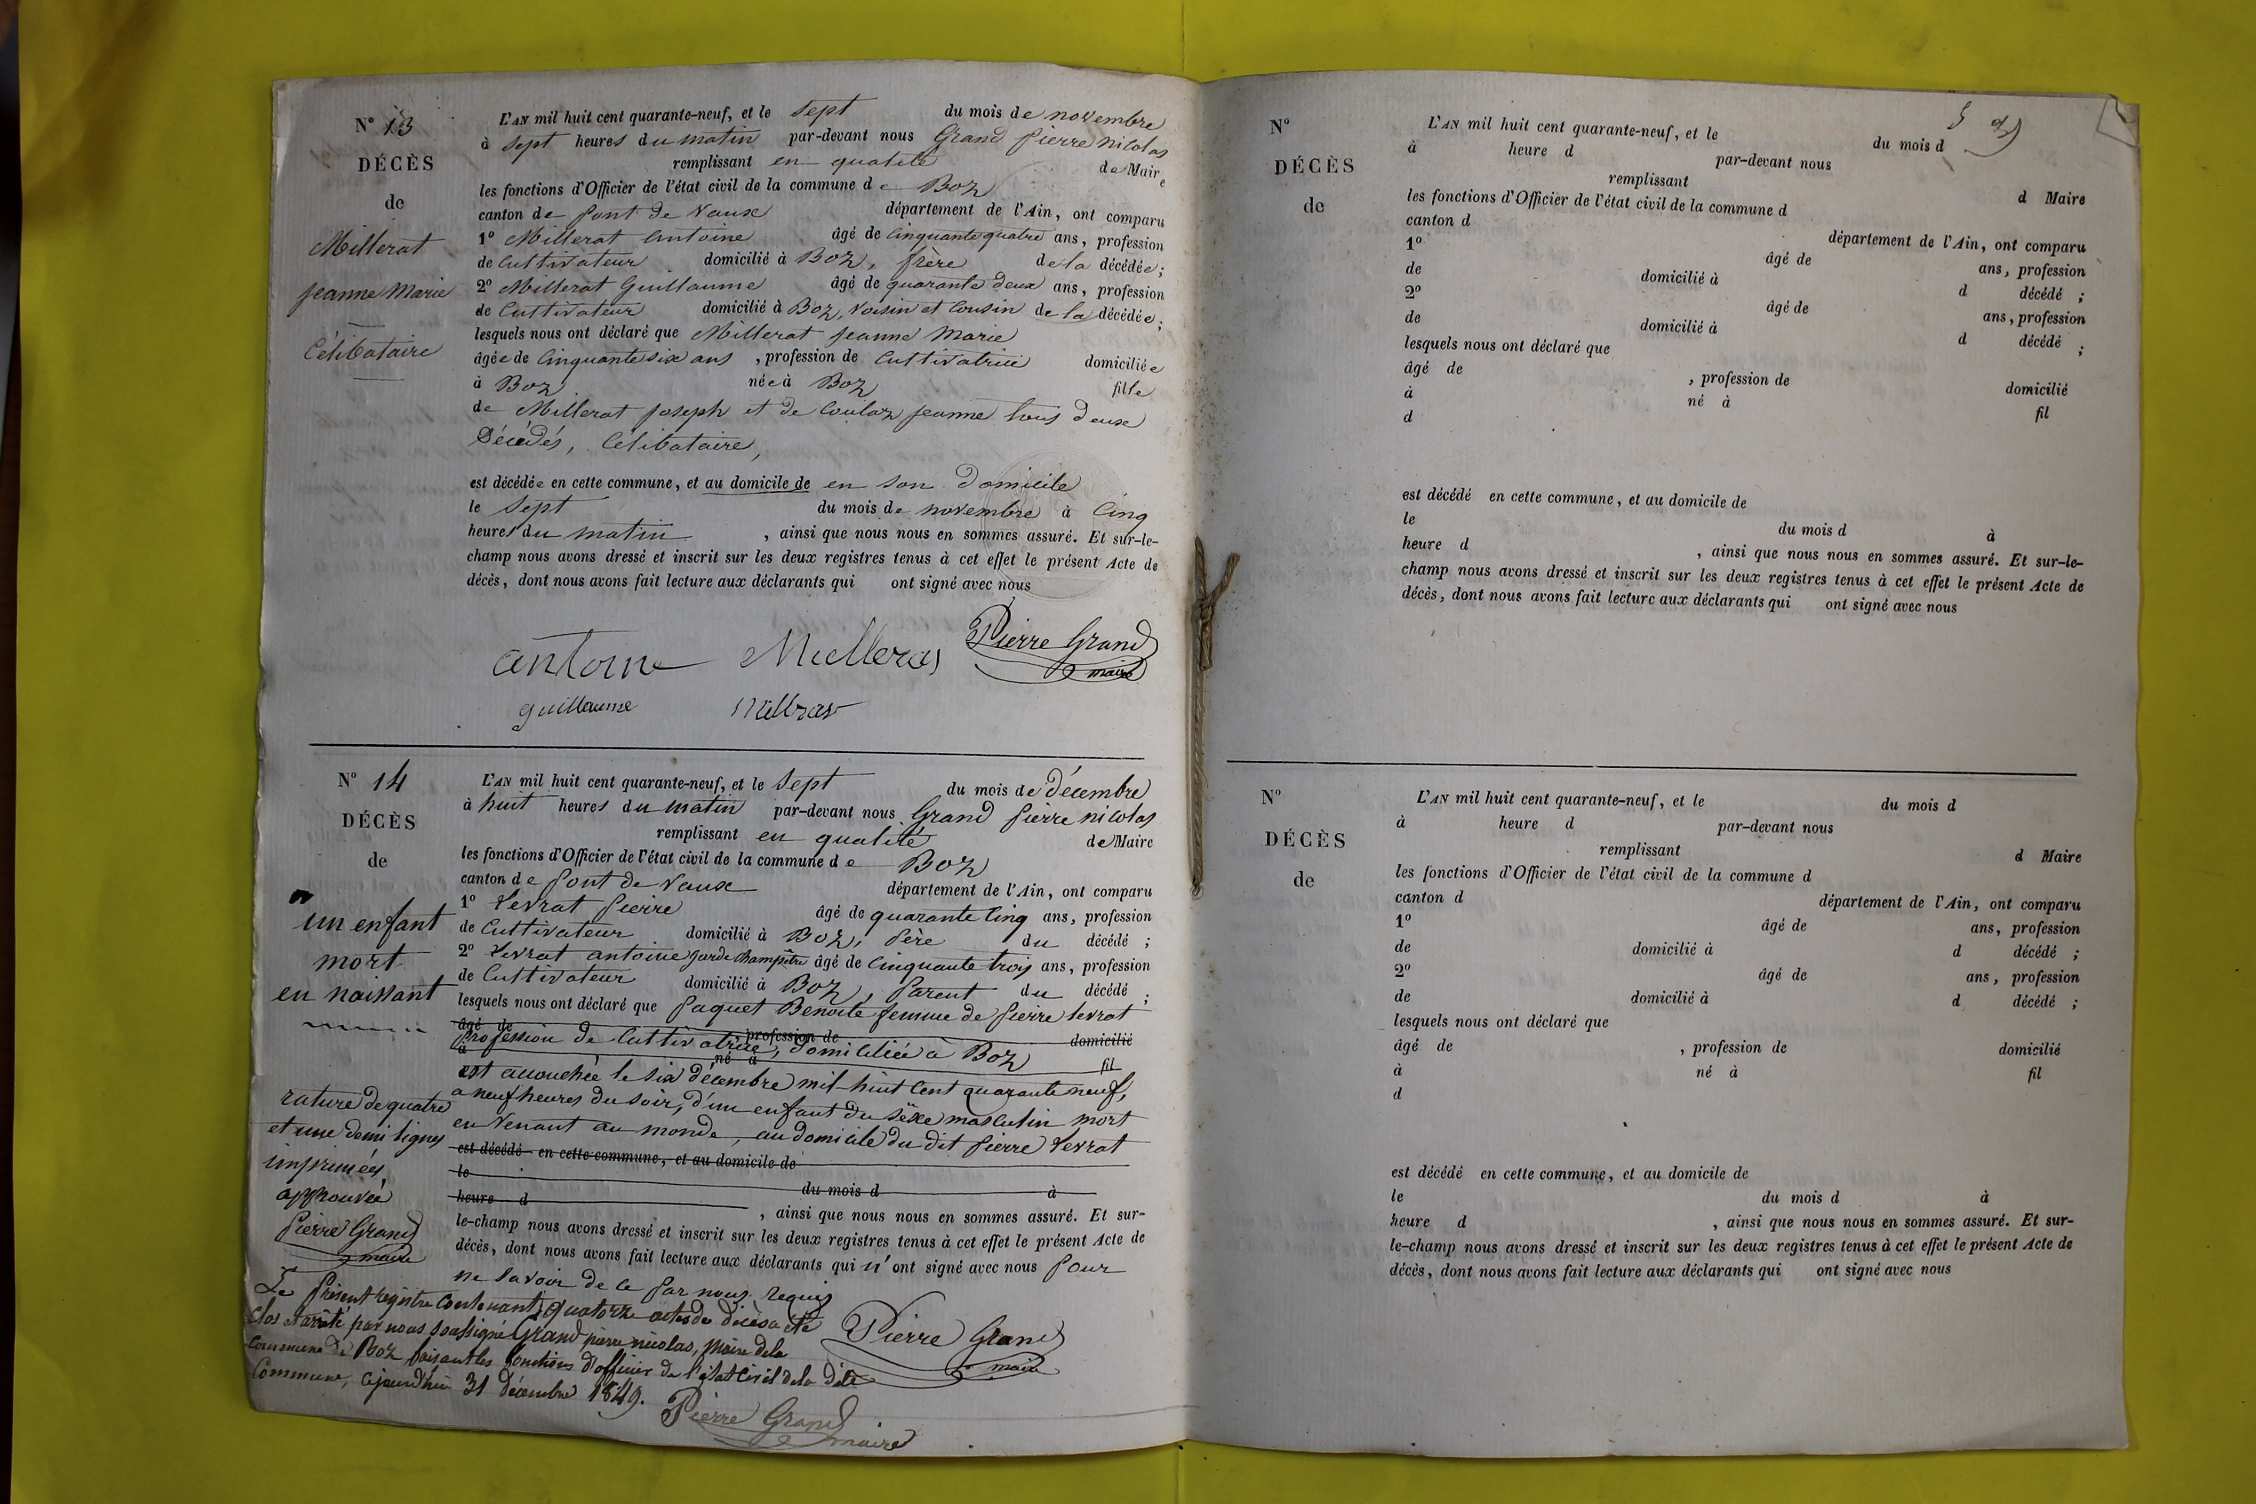 N° 13
DÉCÈS
de
Millerat
jeanne Marie
Célibataire
L'AN mil huit cent quarante-neuf, et le sept du mois de novembre
à sept heures du matin par-devant nous Grand pierre nicolas
remplissant en qualité de Maire
les fonctions d'Officier de l'état civil de la commune de Boz
canton de pont de Vaux département de l'Ain, ont comparu
1° Millerat antoine âgé de cinquante quatre ans, profession
de Cultivateur domicilié à Boz, frère de la décédée;
2° Millerat Guillaume âgé de quarante deux ans, profession
de Cultivateur domicilié à Boz, voisin et Cousin de la décédée;
lesquels nous ont déclaré que Millerat jeanne Marie
âgée de Cinquante six ans, profession de Cultivatrice domiciliée
à Boz née à Boz fille
de Millerat joseph et de Coulaz jeanne tous deux
Décédés, Célibataire,
est décédée en cette commune, et au domicile de en son domicile
le sept du mois de novembre à Cinq
heures du matin, ainsi que nous nous en sommes assuré. Et sur-le-
champ nous avons dressé et inscrit sur les deux registres tenus à cet effet le présent Acte de
décès, dont nous avons fait lecture aux déclarants qui ont signé avec nous
antoine Pierre Grand
maire
guillaume
N° 14
DÉCÈS
de
un enfant
mort
en naissant
L'AN mil huit cent quarante-neuf, et le sept du mois de décembre
à huit heures du matin par-devant nous Grand pierre nicolas
remplissant en qualité de Maire
les fonctions d'Officier de l'état civil de la commune de Boz
canton de pont de Vaux département de l'Ain, ont comparu
1° Levrat pierre âgé de quarante Cinq ans, profession
de Cultivateur domicilié à Boz, père du décédé;
2° Levrat antoine garde champêtre âgé de cinquante trois ans, profession
de Cultivateur domicilié à Boz, parent du décédé;
lesquels nous ont déclaré que paquet Benoite femme de pierre levrat
âgé de profession de domicilié
profession de Cultivatrice, domiciliée à Boz
à né à fil
est accouchée le six décembre mil huit cent quarante neuf,
a neuf heures du soir, d'un enfant du sexe masculin mort
en Venant au monde, au domicile du dit pierre Levrat
est décédé en cette commune, et au domicile de
le du mois d à
heure d, ainsi que nous nous en sommes assuré. Et sur-
le-champ nous avons dressé et inscrit sur les deux registres tenus à cet effet le présent Acte de
décès, dont nous avons fait lecture aux déclarants qui n'ont signé avec nous pour
ne savoir de ce par nous requis
rature de quatre
et une demi lignes
imprimées
approuvée
Pierre Grand
maire
Le présent registre contenant quatorze actes de décès a été
clos et arrêté par nous soussigné Grand pierre nicolas, maire de la
commune de Boz faisant les fonctions d'officier de l'état civil de la dite
Commune, cejourd'hui 31 décembre 1849.
Pierre Grand
maire
Pierre Grand
maire
N°
DÉCÈS
de
L'AN mil huit cent quarante-neuf, et le du mois d
à heure d par-devant nous
remplissant d Maire
les fonctions d'Officier de l'état civil de la commune d
canton d département de l'Ain, ont comparu
1° âgé de ans, profession
de domicilié à d décédé ;
2° âgé de ans, profession
de domicilié à d décédé ;
lesquels nous ont déclaré que
âgé de , profession de domicilié
à né à fil
d
est décédé en cette commune, et au domicile de
le du mois d à
heure d , ainsi que nous nous en sommes assuré. Et sur-le-
champ nous avons dressé et inscrit sur les deux registres tenus à cet effet le présent Acte de
décès, dont nous avons fait lecture aux déclarants qui ont signé avec nous
N°
DÉCÈS
de
L'AN mil huit cent quarante-neuf, et le du mois d
à heure d par-devant nous
remplissant d Maire
les fonctions d'Officier de l'état civil de la commune d
canton d département de l'Ain, ont comparu
1° âgé de ans, profession
de domicilié à d décédé ;
2° âgé de ans, profession
de domicilié à d décédé ;
lesquels nous ont déclaré que
âgé de , profession de domicilié
à né à fil
d
est décédé en cette commune, et au domicile de
le du mois d à
heure d , ainsi que nous nous en sommes assuré. Et sur-
le-champ nous avons dressé et inscrit sur les deux registres tenus à cet effet le présent Acte de
décès, dont nous avons fait lecture aux déclarants qui ont signé avec nous